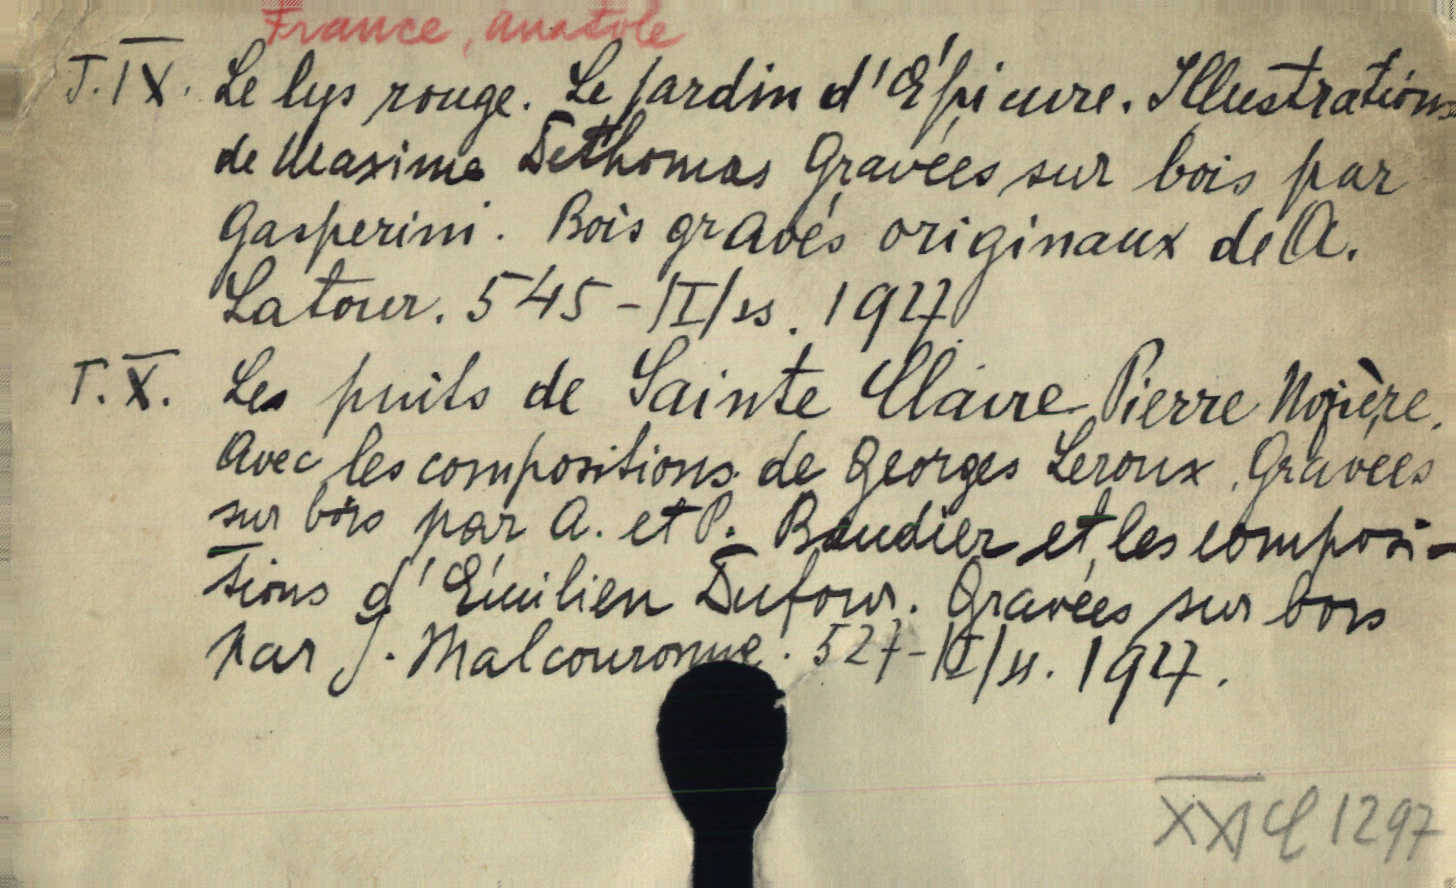 France, Anatole
T.IX. Le lys rouge. Le jardin d'Épicure. Illustrations
de Maxime Dethomas Gravées sur bois par
Gasperini. Bois gravés originaux de A.
Latour. 545-/I/ss. 1927
T.X. Les puits de Sainte Claire Pierre Nozière.
Avec les compositions de Georges Leroux. Gravées
sur bois par A. et P. Baudier et les composi-
tions d'Émilien Dufour. Gravées sur bois
par J. Malcouronne. 527-/I/ss. 1927.
XXI 1297